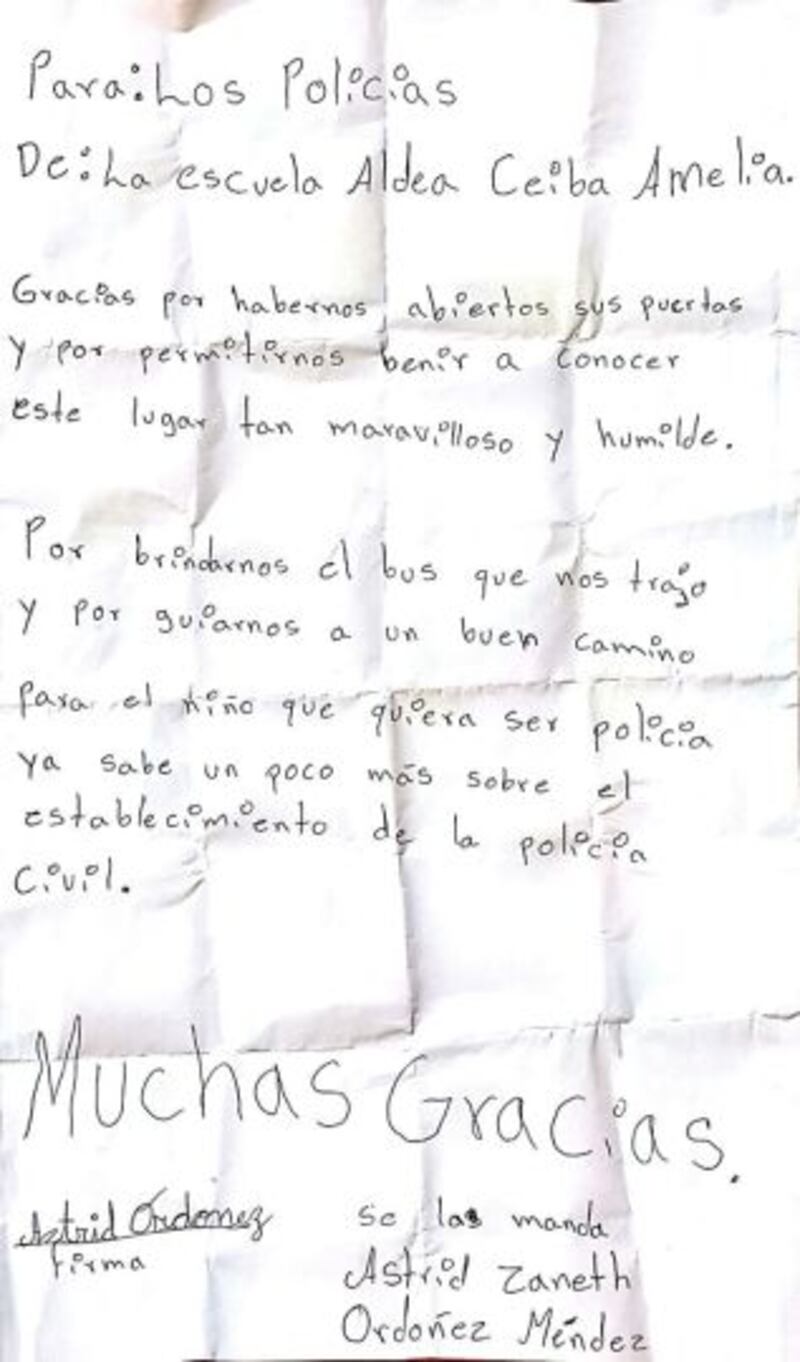 Para: Los Policias
De: La escuela Aldea Ceiba Amelia.
Gracias por habernos abiertos sus puertas
y por permitirnos benir a conocer
este lugar tan maravilloso y humilde.
Por brindarnos el bus que nos trajo
y por guiarnos a un buen camino
para el niño que quiera ser policia
ya sabe un poco más sobre el
establecimiento de la policia
civil.
Muchas Gracias.
Astrid Ordoñez
Firma
se las manda
Astrid Zaneth
Ordoñez Méndez